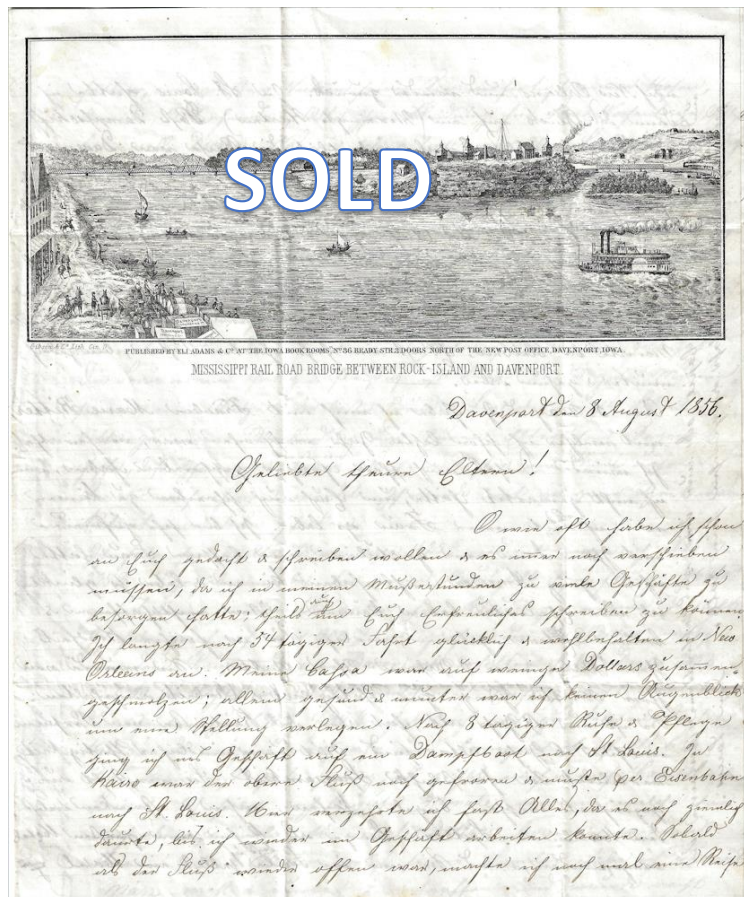 SOLD
PUBLISHED BY ELI ADAMS & Cº. AT THE IOWA BOOK ROOMS Nº 36 BRADY STR. 3 DOORS NORTH OF THE NEW POST OFFICE, DAVENPORT, IOWA.
MISSISSIPPI RAIL ROAD BRIDGE BETWEEN ROCK-ISLAND AND DAVENPORT.
Davenport den 8 August 1856.
Geliebte theure Eltern!
O wie oft habe ich schon
an Euch gedacht & schreiben wollen & es immer noch verschieben
müssen, da ich in meinen Mußestunden zu viele Geschäfte zu
besorgen hatte; theils auch um Euch Erfreuliches schreiben zu können
Ich langte nach 54 tägiger Fahrt glücklich & wohlbehalten in New
Orleans an. Meine Cassa war auf wenige Dollars zusammen
geschmolzen; allein gesund & munter war ich keinen Augenblick
um eine Stellung verlegen. Nach 8 tägiger Ruhe & Pflege
ging ich ins Geschäft auf ein Dampfboot nach St. Louis. In
Kairo war der obere Fluß noch gefroren & mußte per Eisenbahn
nach St. Louis. Hier verzehrte ich fast Alles, da es noch ziemlich
dauerte, bis ich wieder im Geschäft arbeiten konnte. Sobald
als der Fluß wieder offen war, machte ich noch mal eine Reise